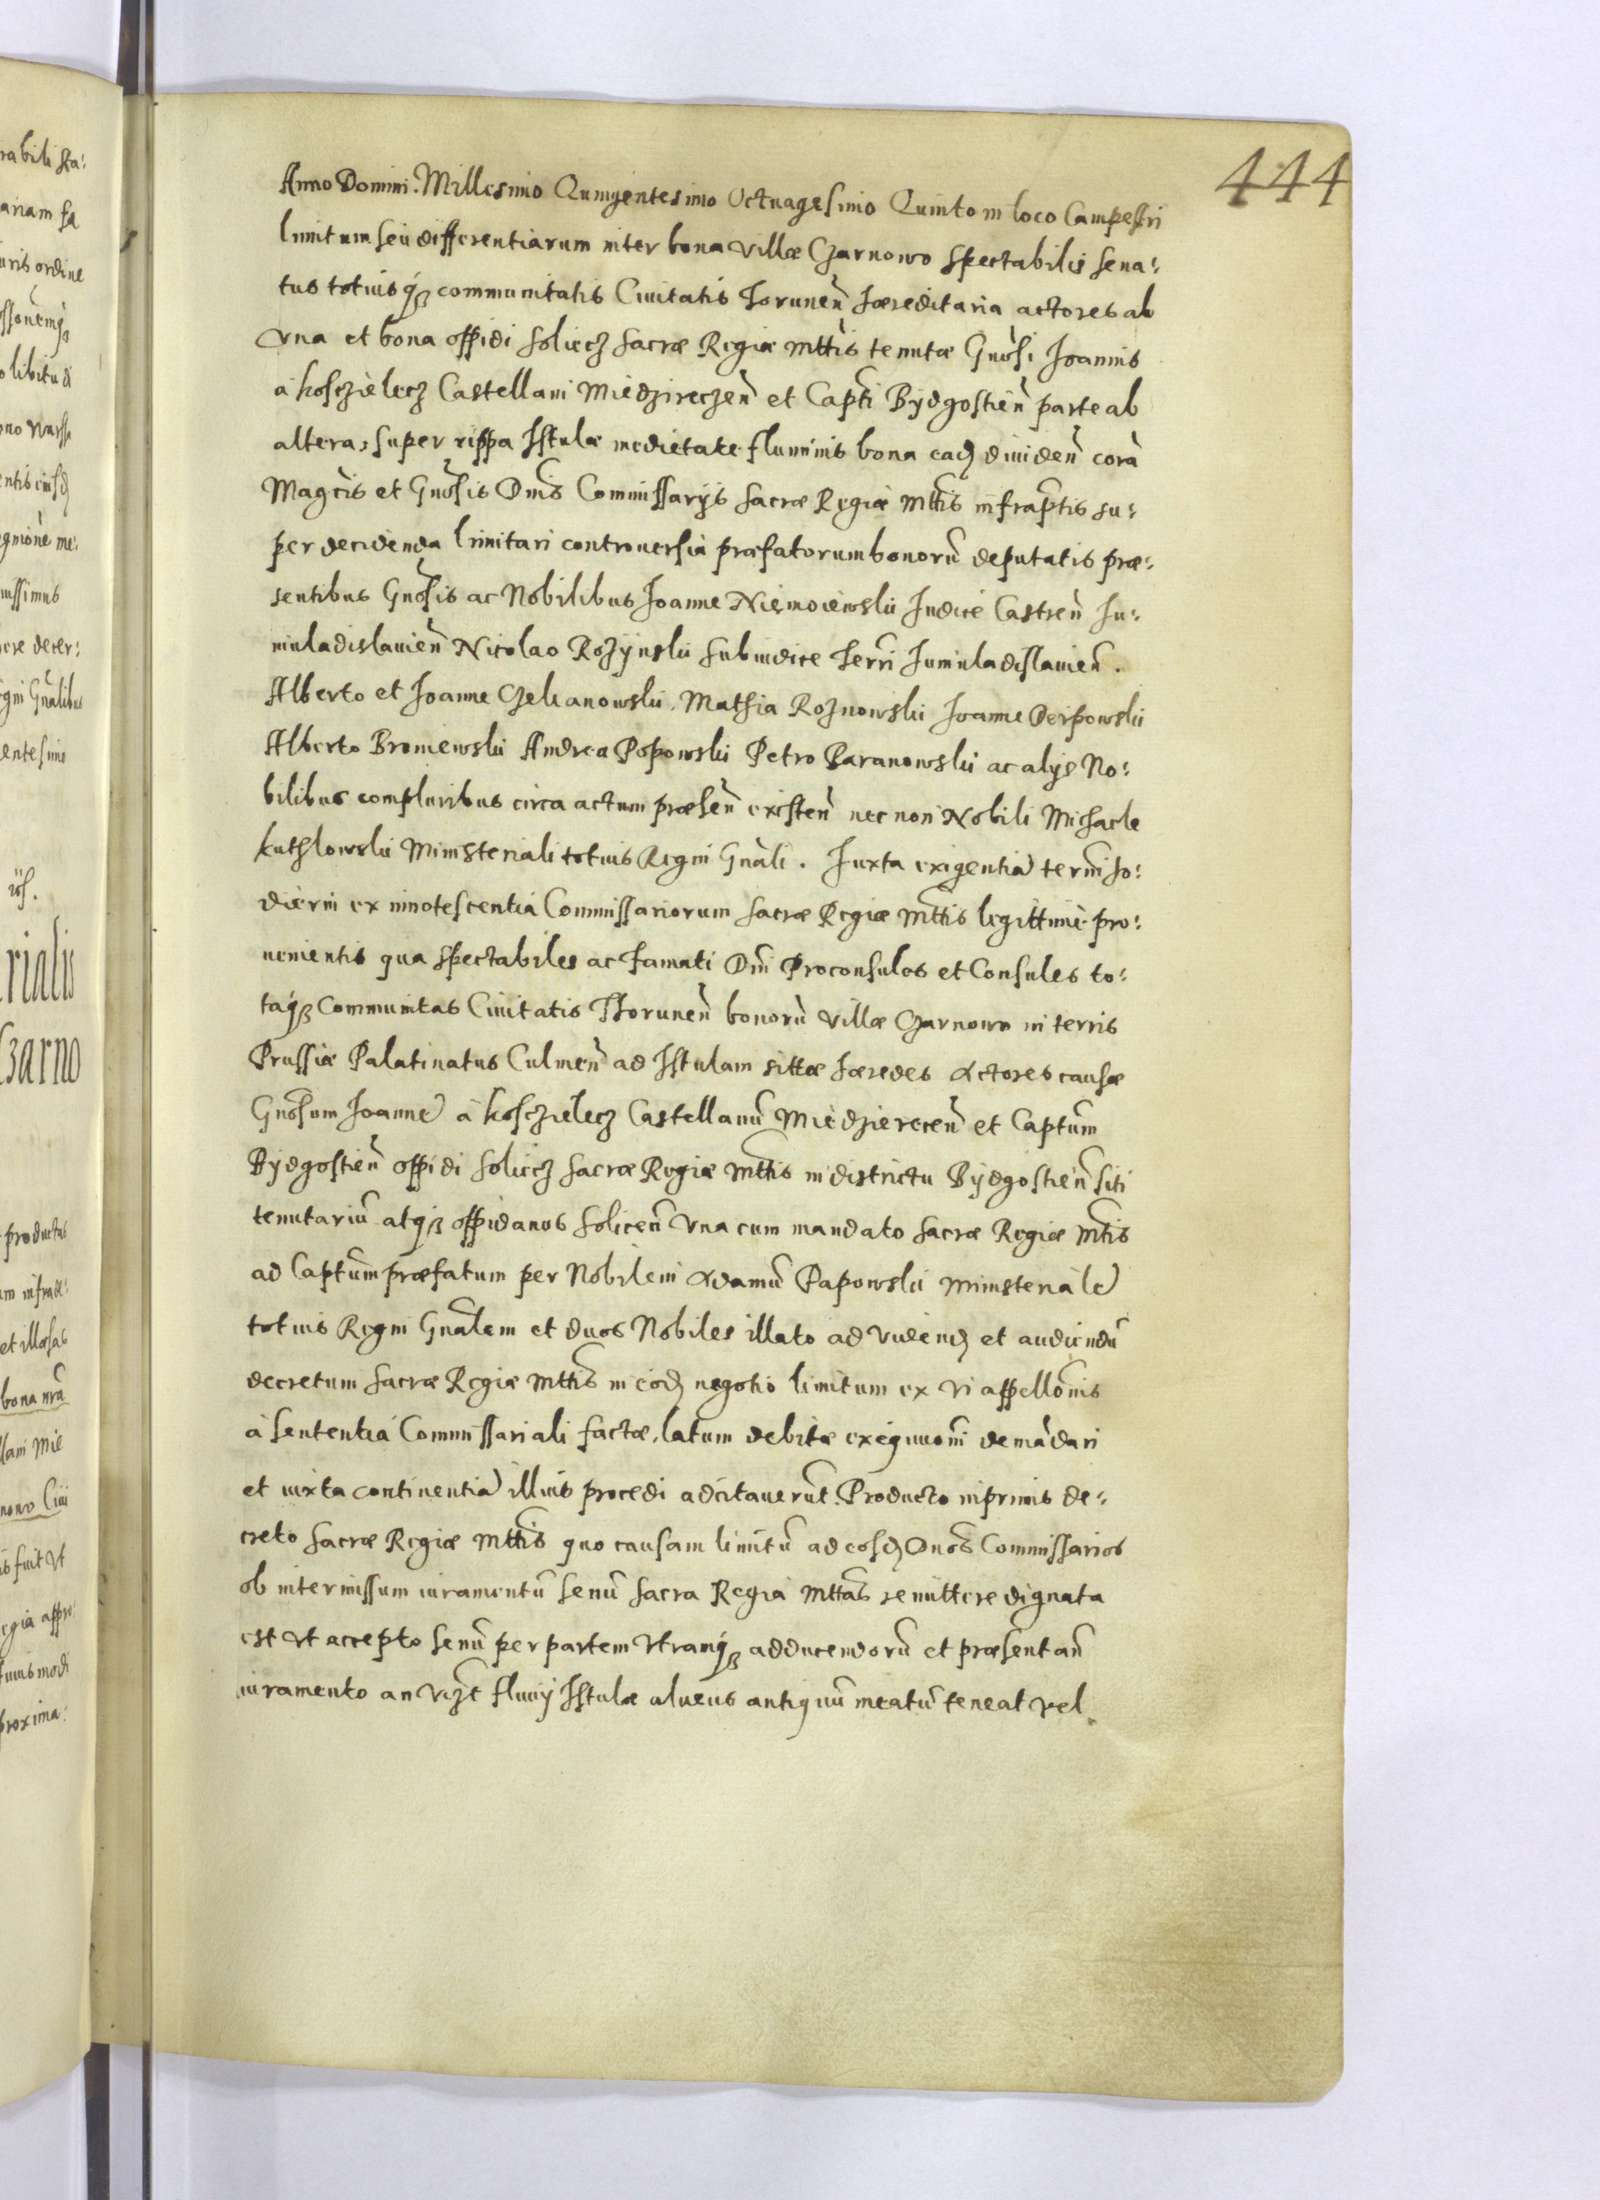 444
Anno Domini. Millesimo Quingentesimo Octuagesimo Quinto in loco Campestri
limitum seu differentiarum inter bona villæ Czarnowo Spectabilis Sena:
tus totiusq3 communitatis Ciuitatis Torunen̄ hæreditaria actores ab
vna et bona oppidi Soliecz Sacræ Regiæ Mttis tenutæ Gnosi Ioannis
a Kosczielecz Castellani Miedzireczen̄ et Capti Bydgostien̄ parte ab
altera, super rippa Istulæ medietate fluminis bona ead diuiden̄ corā
Magcis et Gnosis Dnis Commissarijs Sacræ Regiæ Mttis infraptis su:
per decidenda limitari controuersia præfatorum bonorū deputatis præ:
sentibus Gnosis ac Nobilibus Ioanne Niemoiewski Iudice Castren̄ Iu:
niuladislauien̄ Nicolao Rozynski Subiudice Terri Iuniuladislauien̄.
Alberto et Ioanne Czekanowski, Mathia Roznowski Ioanne Pepowski
Alberto Broniewski Andrea Popowski Petro Paranowski ac alys No:
bilibus compluribus circa actum præsen̄ existen̄ nec non Nobili Michaele
Kuthlowski Ministeriali totius Regni Gnali. Iuxta exigentiā termi ho:
dierni ex innotescentia Commissariorum Sacræ Regiæ Mttis legittime pro:
uenientis qua Spectabiles ac Famati Dni Proconsules et Consules to:
taq3 Communitas Ciuitatis Thorunen̄ bonorū villæ Czarnowo in terris
Prussiæ Palatinatus Culmen̄ ad Istulam sittæ hæredes Actores causæ
Gnosum Ioannē à Kosczielecz Castellanū Miedzierecen̄ et Captum
Bydgostien̄ oppidi Soliecz Sacræ Regiæ Mttis in districtu Bydgostien̄ siti
tenutariū atq3 oppidanos Solicen̄ vna cum mandato Sacræ Regiæ Mtis
ad Captum præfatum per Nobilem Adamū Papowski Ministerialē
totius Regni Gnalem et duos Nobiles illato ad vidend et audiendū
decretum Sacræ Regiæ Mttis in eod negotio limitum ex vi appellonis
à sententia Commissariali factæ, latum debitæ exequuoni demādari
et iuxta continentiā illius procedi adcitauerūt. Producto inprimis de:
creto Sacræ Regiæ Mttis quo causam limitū ad eosd Dnos Commissarios
ob intermissum iuramentū Senū Sacra Regia Mttas remittere dignata
est vt accepto Senū per partem vtramq3 adducendorū et præsentan̄
iuramento an vizt fluuij Istulæ alueus antiquū meatū teneat vel